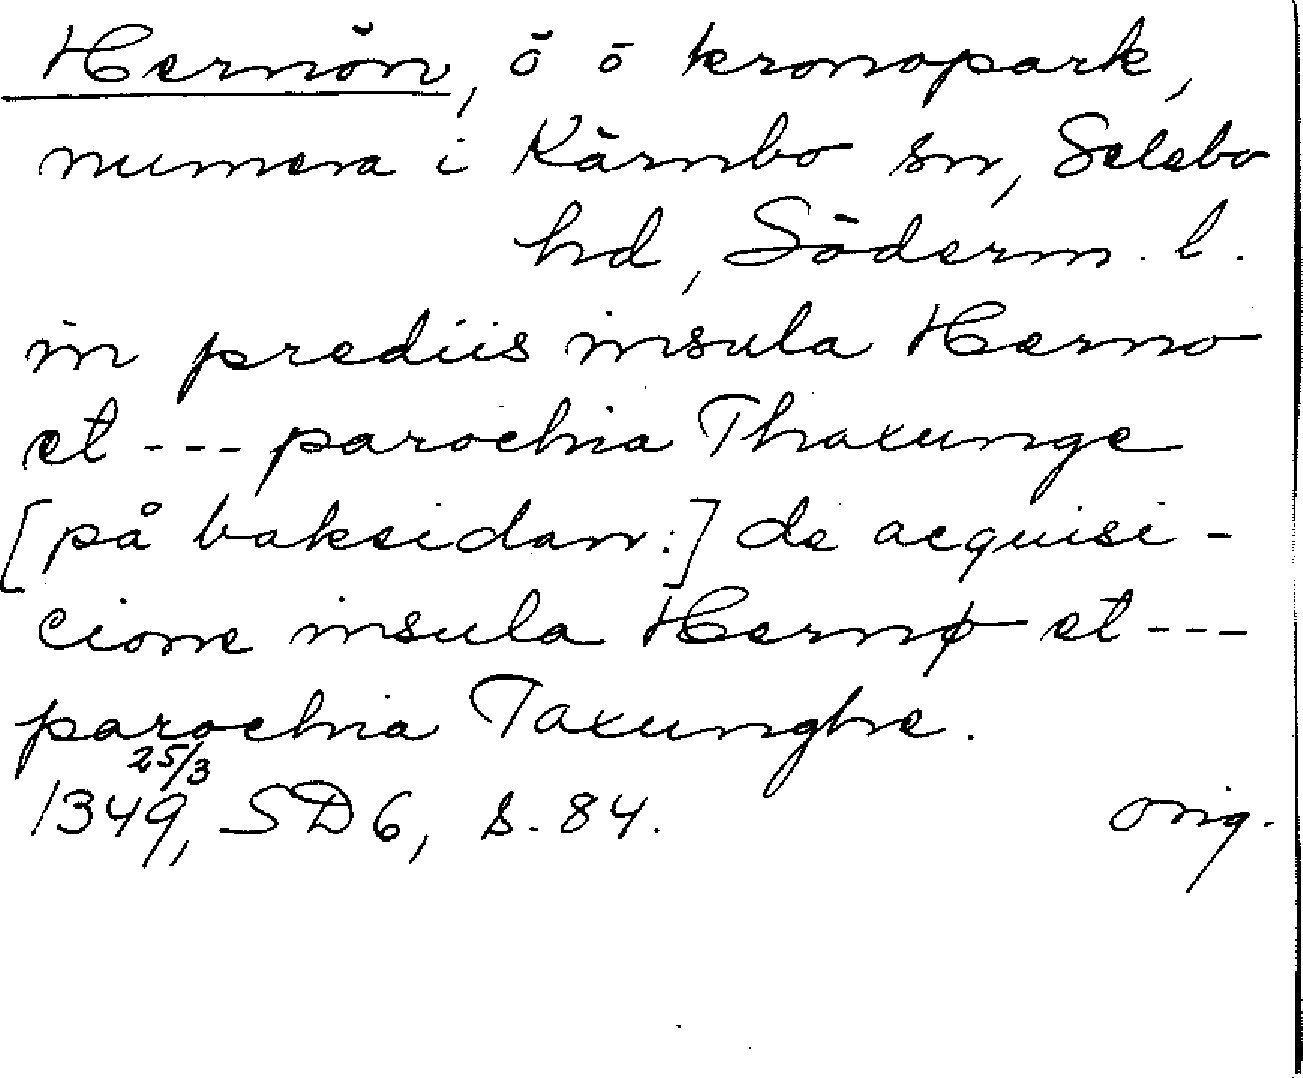 Hernön, ö o kronopark,
numera i Kärnbo sn, Selebo
hd, Söderm. l.
in prediis insula Herno
et --- parochia Thaxunge
[på baksidan:] de acquisi-
cione insula Hernø et ---
parochia Taxunghe.
25/3
1349, SD6, s. 84. orig.